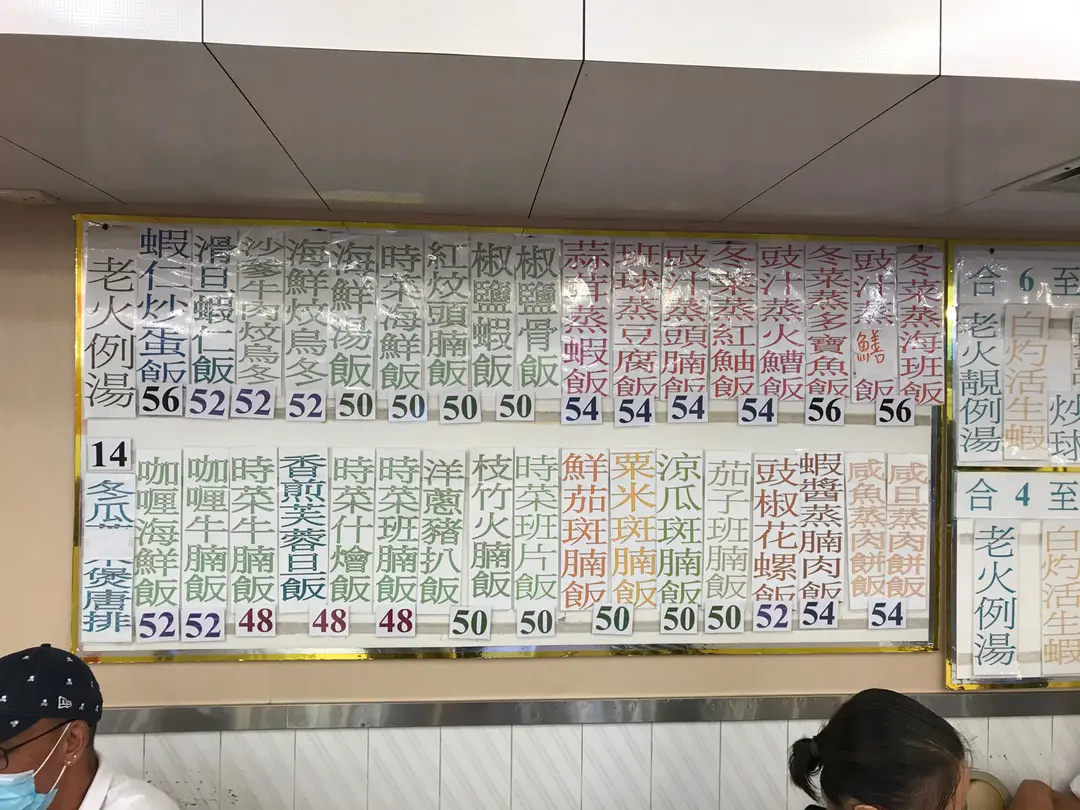 老火例湯
14
蝦仁炒蛋飯
56
滑旦蝦仁飯
52
沙爹牛肉炆烏冬
52
海鮮炆烏冬
52
海鮮湯飯
50
時菜海鮮飯
50
紅炆頭腩飯
50
椒鹽蝦飯
50
椒鹽骨飯
蒜茸蒸蝦飯
54
班球蒸豆腐飯
54
豉汁蒸頭腩飯
54
冬菜蒸紅鮋飯
54
豉汁蒸火鰽飯
冬菜蒸多寶魚飯
56
豉汁蒸鱔飯
冬菜蒸海班飯
56
冬瓜
小煲唐排
咖喱海鮮飯
52
咖喱牛腩飯
52
時菜牛腩飯
48
香煎芙蓉旦飯
時菜什燴飯
48
時菜班腩飯
48
洋蔥豬扒飯
枝竹火腩飯
50
時菜班片飯
50
鮮茄斑腩飯
50
粟米斑腩飯
涼瓜斑腩飯
50
茄子班腩飯
50
豉椒花螺飯
52
蝦醬蒸腩肉飯
54
咸魚蒸肉餅飯
咸旦蒸肉餅飯
54
合6至
老火靚例湯
白灼活生蝦
炒球
合4至
老火例湯
白灼活生蝦